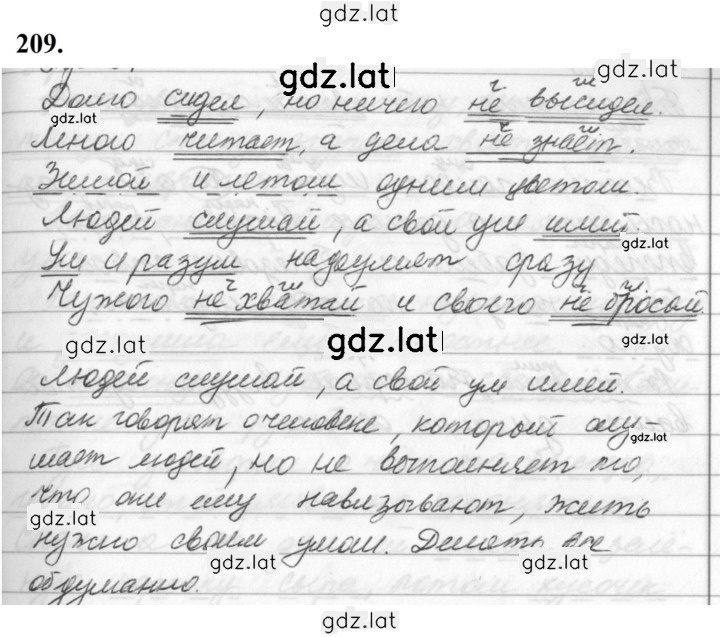 gdz.lat
209.
gdz.lat
Долго сидел, но ничего не высидел.
gdz.lat
Много читает, а дела не знает.
Зимой и летом одним цветом.
Людей слушай, а свой ум имей.
gdz.lat
Ум и разум надоумят сразу
Чужого не хватай и своего не бросай.
gdz.lat
gdz.lat
gdz.lat
Людей слушай, а свой ум имей.
Так говорят о человеке, который слу-
gdz.lat
шает людей, но не выполняет то,
что они ему навязывают, жить
gdz.lat
нужно своим умом. Делать все
gdz.lat
gdz.lat
обдуманно.
gdz.lat